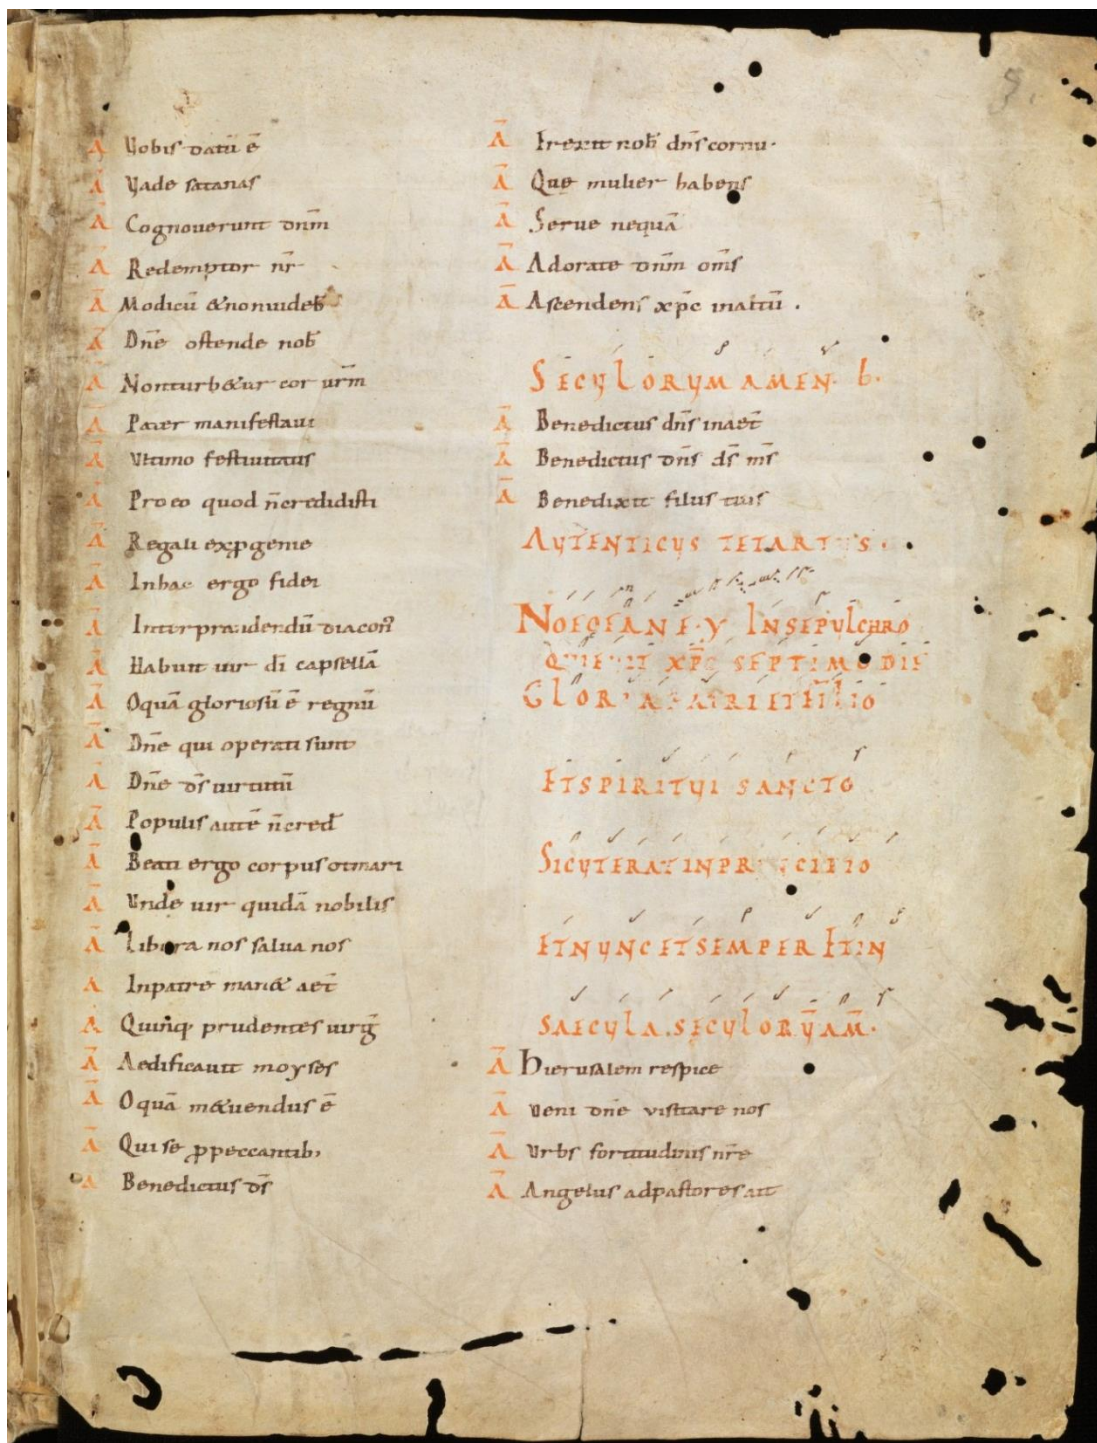 Ā Vobis datū ē
Ā Vade satanas
Ā Cognouerunt dn̄m
Ā Redemptor nr̄
Ā Modicū & non uideb̄
Ā Dn̄e ostende nob̄
Ā Non turb&ur cor ur̄m
Ā Pater manifestaui
Ā Vltimo festiuitatis
Ā Pro eo quod n̄ credidisti
Ā Regali ex ꝓgenie
Ā In hac ergo fidei
Ā Inter prandendū diacon̄
Ā Habuit uir dī capsellā
Ā O quā gloriosū ē regnū
Ā Dn̄e qui operati sunt
Ā Dn̄e ds̄ uirtutū
Ā Populis autē n̄ cred̄
Ā Beati ergo corpus otmari
Ā Vnde uir quidā nobilis
Ā Libera nos salua nos
Ā In patre man& aet̄
Ā Quinq; prudentes uirḡ
Ā Aedificauit moyses
Ā O quā m&uendus ē
Ā Qui se ꝓ peccantib;
Ā Benedictus ds̄
Ā Erexit nob̄ dn̄s cornu.
Ā Quę mulier habens
Ā Serue nequā
Ā Adorate dn̄m om̄s
Ā Ascendens xp̄c in altū .
SECVLORVM AMEN. b.
Ā Benedictus dn̄s in aet̄
Ā Benedictus dn̄s ds̄ ms̄
Ā Benedixit filiis tuis
AVTENTICVS TETARTVS.
NOEOEANE. Y IN SEPVLCHRO
QVIEVIT XP̄C SEPTIMO DIE
GLORIA PATRI ET FILIO
ET SPIRITVI SANCTO
SICVT ERAT IN PRINCIPIO
ET NVNC ET SEMPER ET IN
SAECVLA. SECVLORV̄ AM̄.
Ā Hierusalem respice
Ā Veni dn̄e visitare nos
Ā Vrbs fortitudinis nr̄e
Ā Angelus ad pastores ait